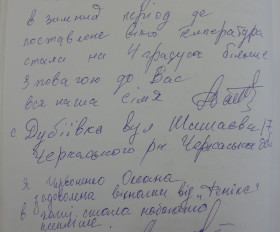 в зимний період де
поставлене вікно температура
стала на 4 градуси більше
З повагою до Вас
вся наша сім'я
с Дубіївка вул
Черкаського р-н Черкаська обл
Я Оксана
задоволена вікнами від "Фенікс"
в хаті стало набагато
тепліше